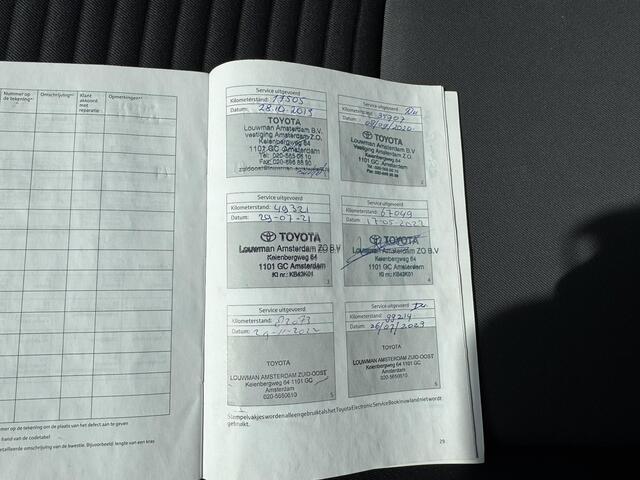 Nummer op de tekening*¹
Omschrijving*²
Klant akkoord met reparatie
Opmerkingen*³
Service uitgevoerd
Kilometerstand: 17505
Datum: 28.10.2019
TOYOTA
Louwman Amsterdam B.V.
vestiging Amsterdam Z.O.
Keienbergweg 64
1101 GC Amsterdam
Service uitgevoerd
Kilometerstand:
Datum: 08/09/2020
TOYOTA
Louwman Amsterdam B.V.
Vestiging Amsterdam Z.O.
Keienbergweg 64
1101 GC Amsterdam
2
Service uitgevoerd
Kilometerstand: 49321
Datum: 29-07-21
TOYOTA
Louwman Amsterdam ZO B.V
Keienbergweg 64
1101 GC Amsterdam
KI nr.: KB43K01
3
Service uitgevoerd
Kilometerstand: 67049
Datum: 17-05-2022
TOYOTA
Louwman Amsterdam ZO B.V
Keienbergweg 64
1101 GC Amsterdam
KI nr.: KB43K01
4
Service uitgevoerd
Kilometerstand: 82073
Datum: 29-11-2022
TOYOTA
LOUWMAN AMSTERDAM ZUID-OOST
Keienbergweg 64 1101 GC
Amsterdam
020-5650610
5
Service uitgevoerd
Kilometerstand: 99214
Datum: 26/07/2023
TOYOTA
LOUWMAN AMSTERDAM ZUID-OOST
Keienbergweg 64 1101 GC
Amsterdam
020-5650610
Stempelvakjes worden alleen gebruikt als het Toyota Electronic Service Book in uw land niet wordt
gebruikt.
29
mer op de tekening om de plaats van het defect aan te geven
hand van de codetabel
etailleerde omschrijving van de kwestie. Bijvoorbeeld: lengte van een kras